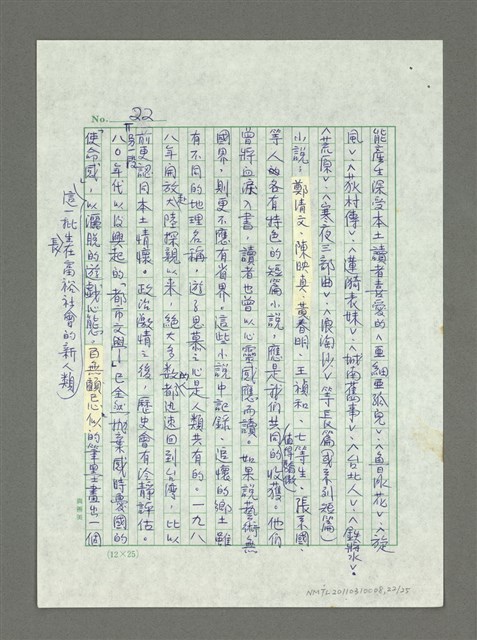 No. 22
能產生深受本土讀者喜愛的︿亞細亞孤兒﹀、︿魯冰花﹀、︿旋
風﹀、︿荻村傳﹀、︿蓮漪表妹﹀、︿城南舊事﹀、︿台北人﹀、︿鐵漿﹀、
︿荒原﹀、︿寒夜三部曲﹀、︿浪淘沙﹀等長篇(或系列短篇)
小說;鄭清文、陳映真、黃春明、王禎和、七等生、張系國、
等人的各有特色的短篇小說,應是我們共同的收穫。他們
值得驕傲
曾將血淚入書,讀者也曾以心靈感應而讀。如果說藝術無
國界,則更不應有省界。這些小說中記錄、追懷的鄉土雖
有不同的地理名稱,遊子思慕之心是人類共有的。一九八
八年開放大陸探親以來,絕大多數都迅速回到台灣,比以
赴
的人
前更認同本土情懷。政治激情之後,歷史會有冷靜評估。
另一段
八○年代以後興起的「都市文學」已全然拋棄感時憂國的
「使命感」,以灑脫的遊戲心態,百無顧忌似的筆墨畫出一個
這一批生長在富裕社會的新人類
(12×25)
NMTL20110310008, 22/25